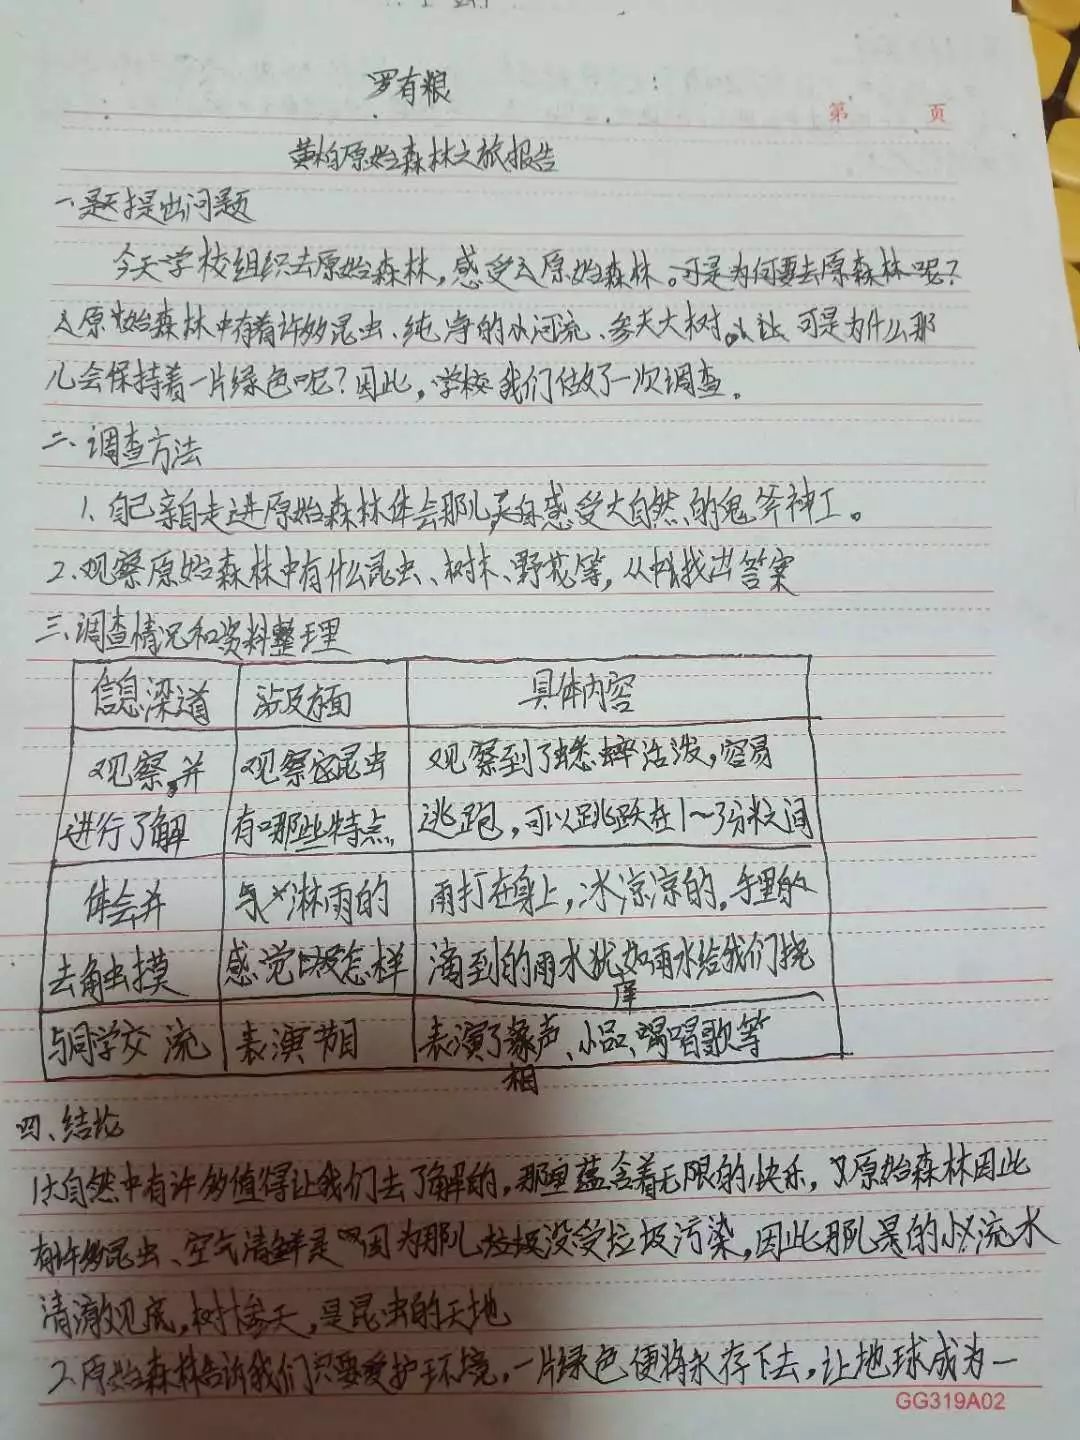 罗有粮
第 页
黄柏原始森林之旅报告
一提出问题
今天学校组织去原始森林，感受原始森林。可是为何要去原森林呢？
原始森林中有着许多昆虫、纯净的小河流、参天大树。可是为什么那
儿会保持着一片绿色呢？因此，学校我们做了一次调查。
二、调查方法
1、自己亲自走进原始森林体会那儿感受大自然的鬼斧神工。
2、观察原始森林中有什么昆虫、树木、野花等，从中找出答案
三、调查情况和资料整理
信息渠道 涉及方面 具体内容
观察，并 观察昆虫 观察到了蟋蟀活泼，容易
进行了解 有哪些特点 逃跑，可以跳跃在1～3分米之间
体会并 淋雨的 雨打在身上，冰凉凉的，手里的
去触摸 感觉怎样 滴到的雨水犹如雨水给我们挠
痒
与同学交流 表演节目 表演了象声、小品、唱歌等
相
四、结论
1、大自然中有许多值得让我们去了解的，那里蕴含着无限的快乐，原始森林因此
有许多昆虫、空气清鲜是因为那儿没受垃圾污染，因此那儿的小流水
清澈见底，树木参天，是昆虫的天地
2、原始森林告诉我们只要爱护环境，一片绿色便将永存下去，让地球成为一
GG319A02